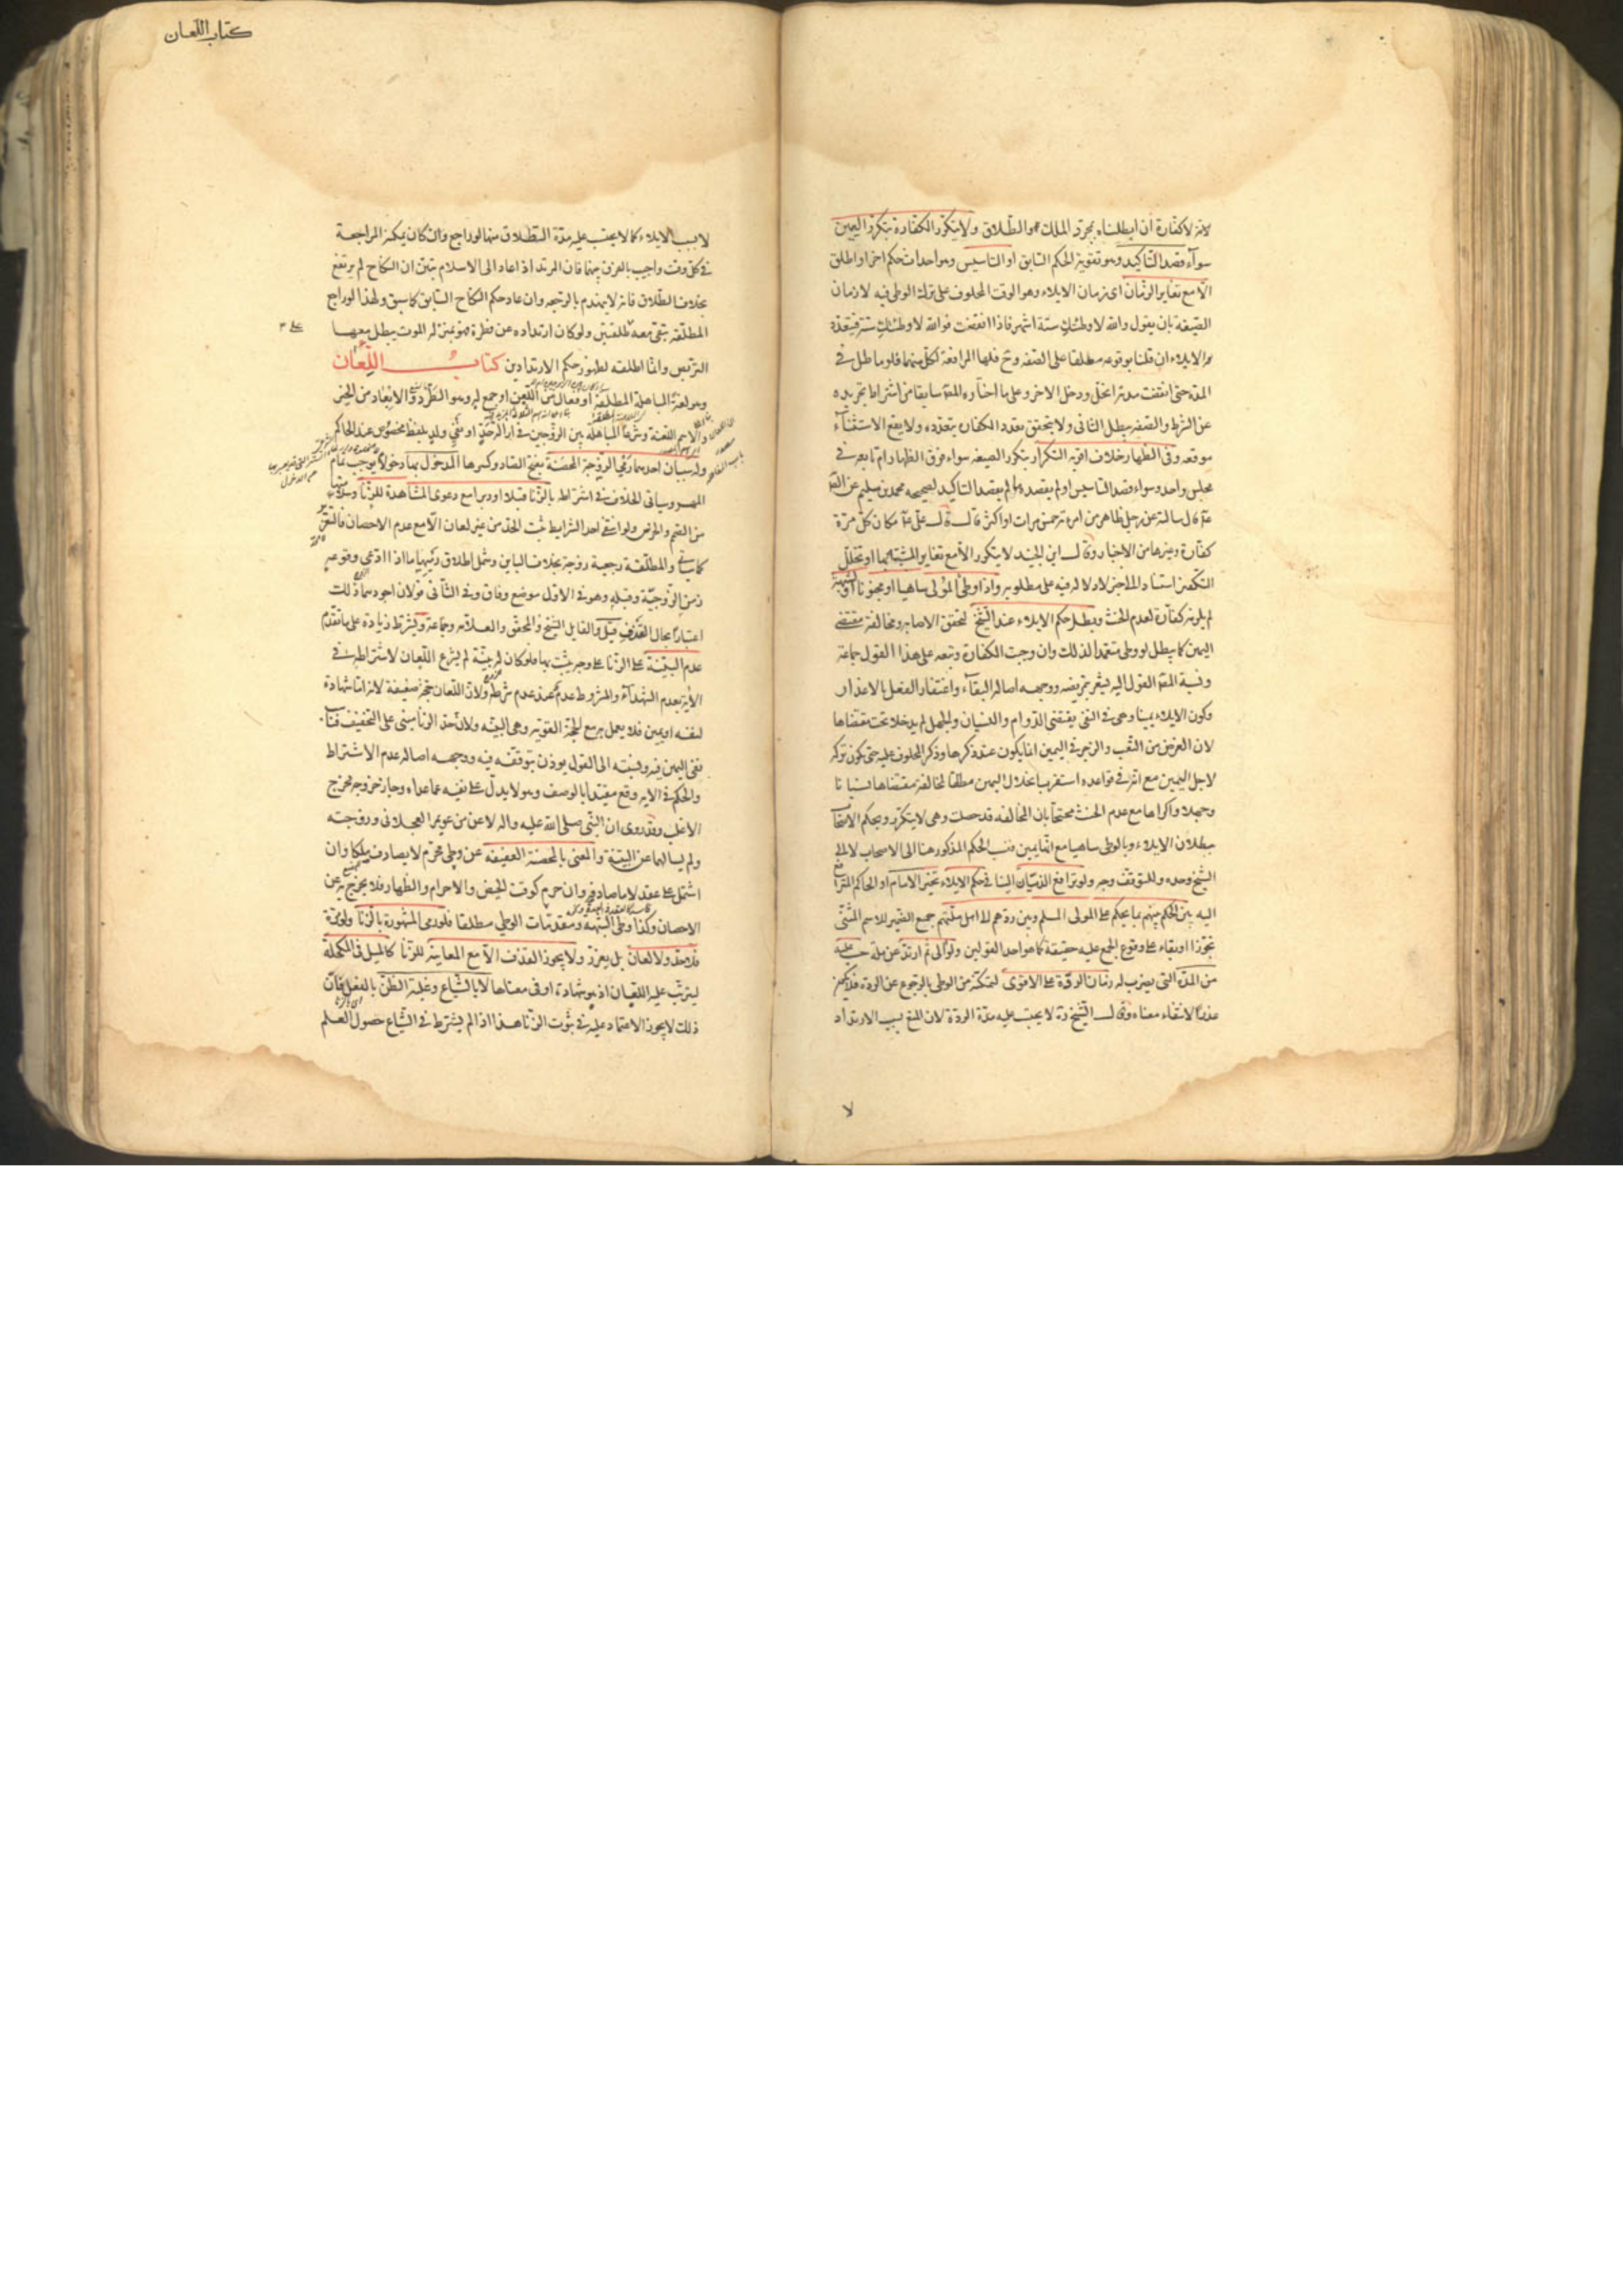 لانه لا كفارة ان ابطلناه بمجرد الملك والطلاق ولا يتكرر الكفارة بتكرر اليمين
سوآء قصد التاكيد وهو تقوية الحكم السابق او التاسيس وهو احداث حكم اخر او اطلق
الا مع تغاير الزمان اى زمان الايلاء وهو الوقت المحلوف على ترك الوطى فيه لا زمان
الصيغة بان يقول والله لا وطئتك ستة اشهر فاذا انقضت فوالله لا وطئتك سنة فيتعدد
الايلاء ان قلنا بوقوعه معلقا على الصفة وح فلها المرافعة لكل منهما فلو ماطل فى
المدة حتى انقضت مدته انحل ودخل الاخر وعلى ما اختاره المصـ سابقا من اشتراط تجريده
عن الشرط والصفة يبطل الثانى ولا يتحقق تعدد الكفارة بتعدده ولا يقع الاستثنآء
موقعه وفى الظهار خلاف اقربه التكرار بتكرر الصيغه سواء فرق الظهار ام تابعه فى
مجلس واحد وسواء قصد التاسيس او لم يقصده ما لم يقصد التاكيد لصحيحة محمد بن مسلم عن
قال سالته عن رجل ظاهر من امرته خمس مرات او اكثر قال قال على مكان كل مرة
كفارة وغيرها من الاخبار وقال ابن الجنيد لا يتكرر الا مع تغاير المشبه بها او تخلل
التكفير استنادا الى خبر لا دلالة فيه على مطلوبه واذا وطئ المولى ساهيا او مجنونا او لشبهة
لم يلزمه كفارة لعدم الحنث وبطل حكم الايلاء عند الشيخ لتحقق الاصابه ومخالفة مقتضى
اليمين كما يبطل لو وطى متعمدا لذلك وان وجبت الكفارة وتبعه على هذا القول جماعة
ونسبة المصـ القول اليه يشعر بتمريضه ووجهه اصالة البقآء واغتفار الفعل بالاعذار
وكون الايلاء يمينا وهى فى النفى يقتضى الدوام والنسيان والجهل لم يدخلا تحت مقتضاها
لان الغرض من البعث والزجر فى اليمين انما يكون عند ذكرها وذكر المحلوف عليه حتى يكون تركه
لاجل اليمين مع انه فى قواعده استقرب انحلال اليمين مطلقا بمخالفة مقتضاها نسيانا
وجهلا واكراها مع عدم الحنث محتجا بان المخالفة قد حصلت وهى لا يتكرر وبحكم الاصحاب
ببطلان الايلاء بالوطى ساهيا مع انها يمين فنسب الحكم المذكور هنا الى الاصحاب لا الى
الشيخ وحده وللتوقف وجه ولو ترافع الذميان الينا فى حكم الايلاء تخير الامام او الحاكم المترافع
اليه بين الحكم بينهم بما يحكم على المولى المسلم وبين ردهم الى اهل ملتهم جمع الضمير للاسم المثنى
تجوزا او بناء على وقوع الجمع عليه حقيقة كما هو احد القولين ولو الى ثم ارتد عن ملة حسب عليه
من المدة التى يضرب له زمان الردة على الاقوى لتمكنه من الوطى بالرجوع عن الردة فلا يكون
عذرا لانتفاء معناه وقال الشيخ رة لا يحتسب عليه مدة الردة لان المنع بسبب الارتداد
لا
كتاب اللعان
لا بسبب الايلاء كما لا يحتسب عليه مدة الطلاق منها لو راجع وان كان يمكنه المراجعة
فى كل وقت واجيب بالفرق بينهما فان المرتد اذا عاد الى الاسلام تبين ان النكاح لم يرتفع
بخلاف الطلاق فانه لا ينهدم بالرجعه وان عاد حكم النكاح السابق كما سبق ولهذا لو راجع
المطلقة تبقى معه على طلقتين ولو كان ارتداده عن فطرة فهو بمنزلة الموت يبطل معها
التربص وانما اطلقه لظهور حكم الارتدادين كتاب اللعان
وهو لغة المباهلة المطلقة او فعال من اللعن او جمع له وهو الطرد والابعاد من الخير
والاسم اللعنة وشرعا المباهلة بين الزوجين فى ازالة حد او نفى ولد بلفظ مخصوص عند الحاكم
وله سببان احدهما رمى الزوجة المحصنة بفتح الصاد وكسرها المدخول بها دخولا يوجب تمام
المهر وسياتى الخلاف فى اشتراطه بالزنا قبلا او دبرا مع دعوى المشاهدة للزنا وسلامتها
من الصمم والخرس ولو انتفى احد الشرايط ثبت الحد من غير لعان الا مع عدم الاحصان فالتعزير
كما سياتى والمطلقة رجعية زوجة بخلاف الباين وشمل اطلاق رميها ما اذا ادعى وقوعه
زمن الزوجية وقبله وهو فى الاول موضع وفاق وفى الثانى قولان اجودهما ذلك
اعتبارا بحال القذف قيل والقايل الشيخ والمحقق والعلامة وجماعة ويشترط زيادة على ما تقدم
عدم البينة على الزنا على وجه يثبت بها فلو كان له بينة لم يشرع اللعان لاشتراطه فى
الاية بعدم الشهدآء والمشروط عدم عند عدم شرطه ولان اللعان حجة ضعيفة لانه اما شهادة
لنفسه او يمين فلا يعمل به مع الحجة القوية وهى البينة ولان حد الزنا مبنى على التخفيف فناسب
نفى اليمين فيه ونسبته الى القول يوذن بتوقفه فيه ووجهه اصالة عدم الاشتراط
والحكم فى الاية وقع مقيدا بالوصف وهو لا يدل على نفيه عما عداه وجاز خروجه مخرج
الاغلب وقد روى ان النبى صلى الله عليه واله لاعن بين عويمر العجلانى وزوجته
ولم يسالهما عن البينة والمعنى بالمحصنة العفيفة عن وطى محرم لا يصادف ملكا وان
اشتمل على عقد لا ما صادفه وان حرم كوقت الحيض والاحرام والظهار فلا يخرج به عن
الاحصان وكذا وطى الشبهة ومقدمات الوطى مطلقا فلو رمى المشهورة بالزنا ولو مرة
فلا حد ولا لعان بل يعزر ولا يجوز القذف الا مع المعاينة للزنا كالميل فى المكحلة
ليترتب عليه اللعان اذ هو شهادة او فى معناها لا بالشياع وغلبة الظن بالفعل فان
ذلك لا يجوز الاعتماد عليه فى ثبوت الزنا هذا اذا لم يشترط فى الشياع حصول العلم